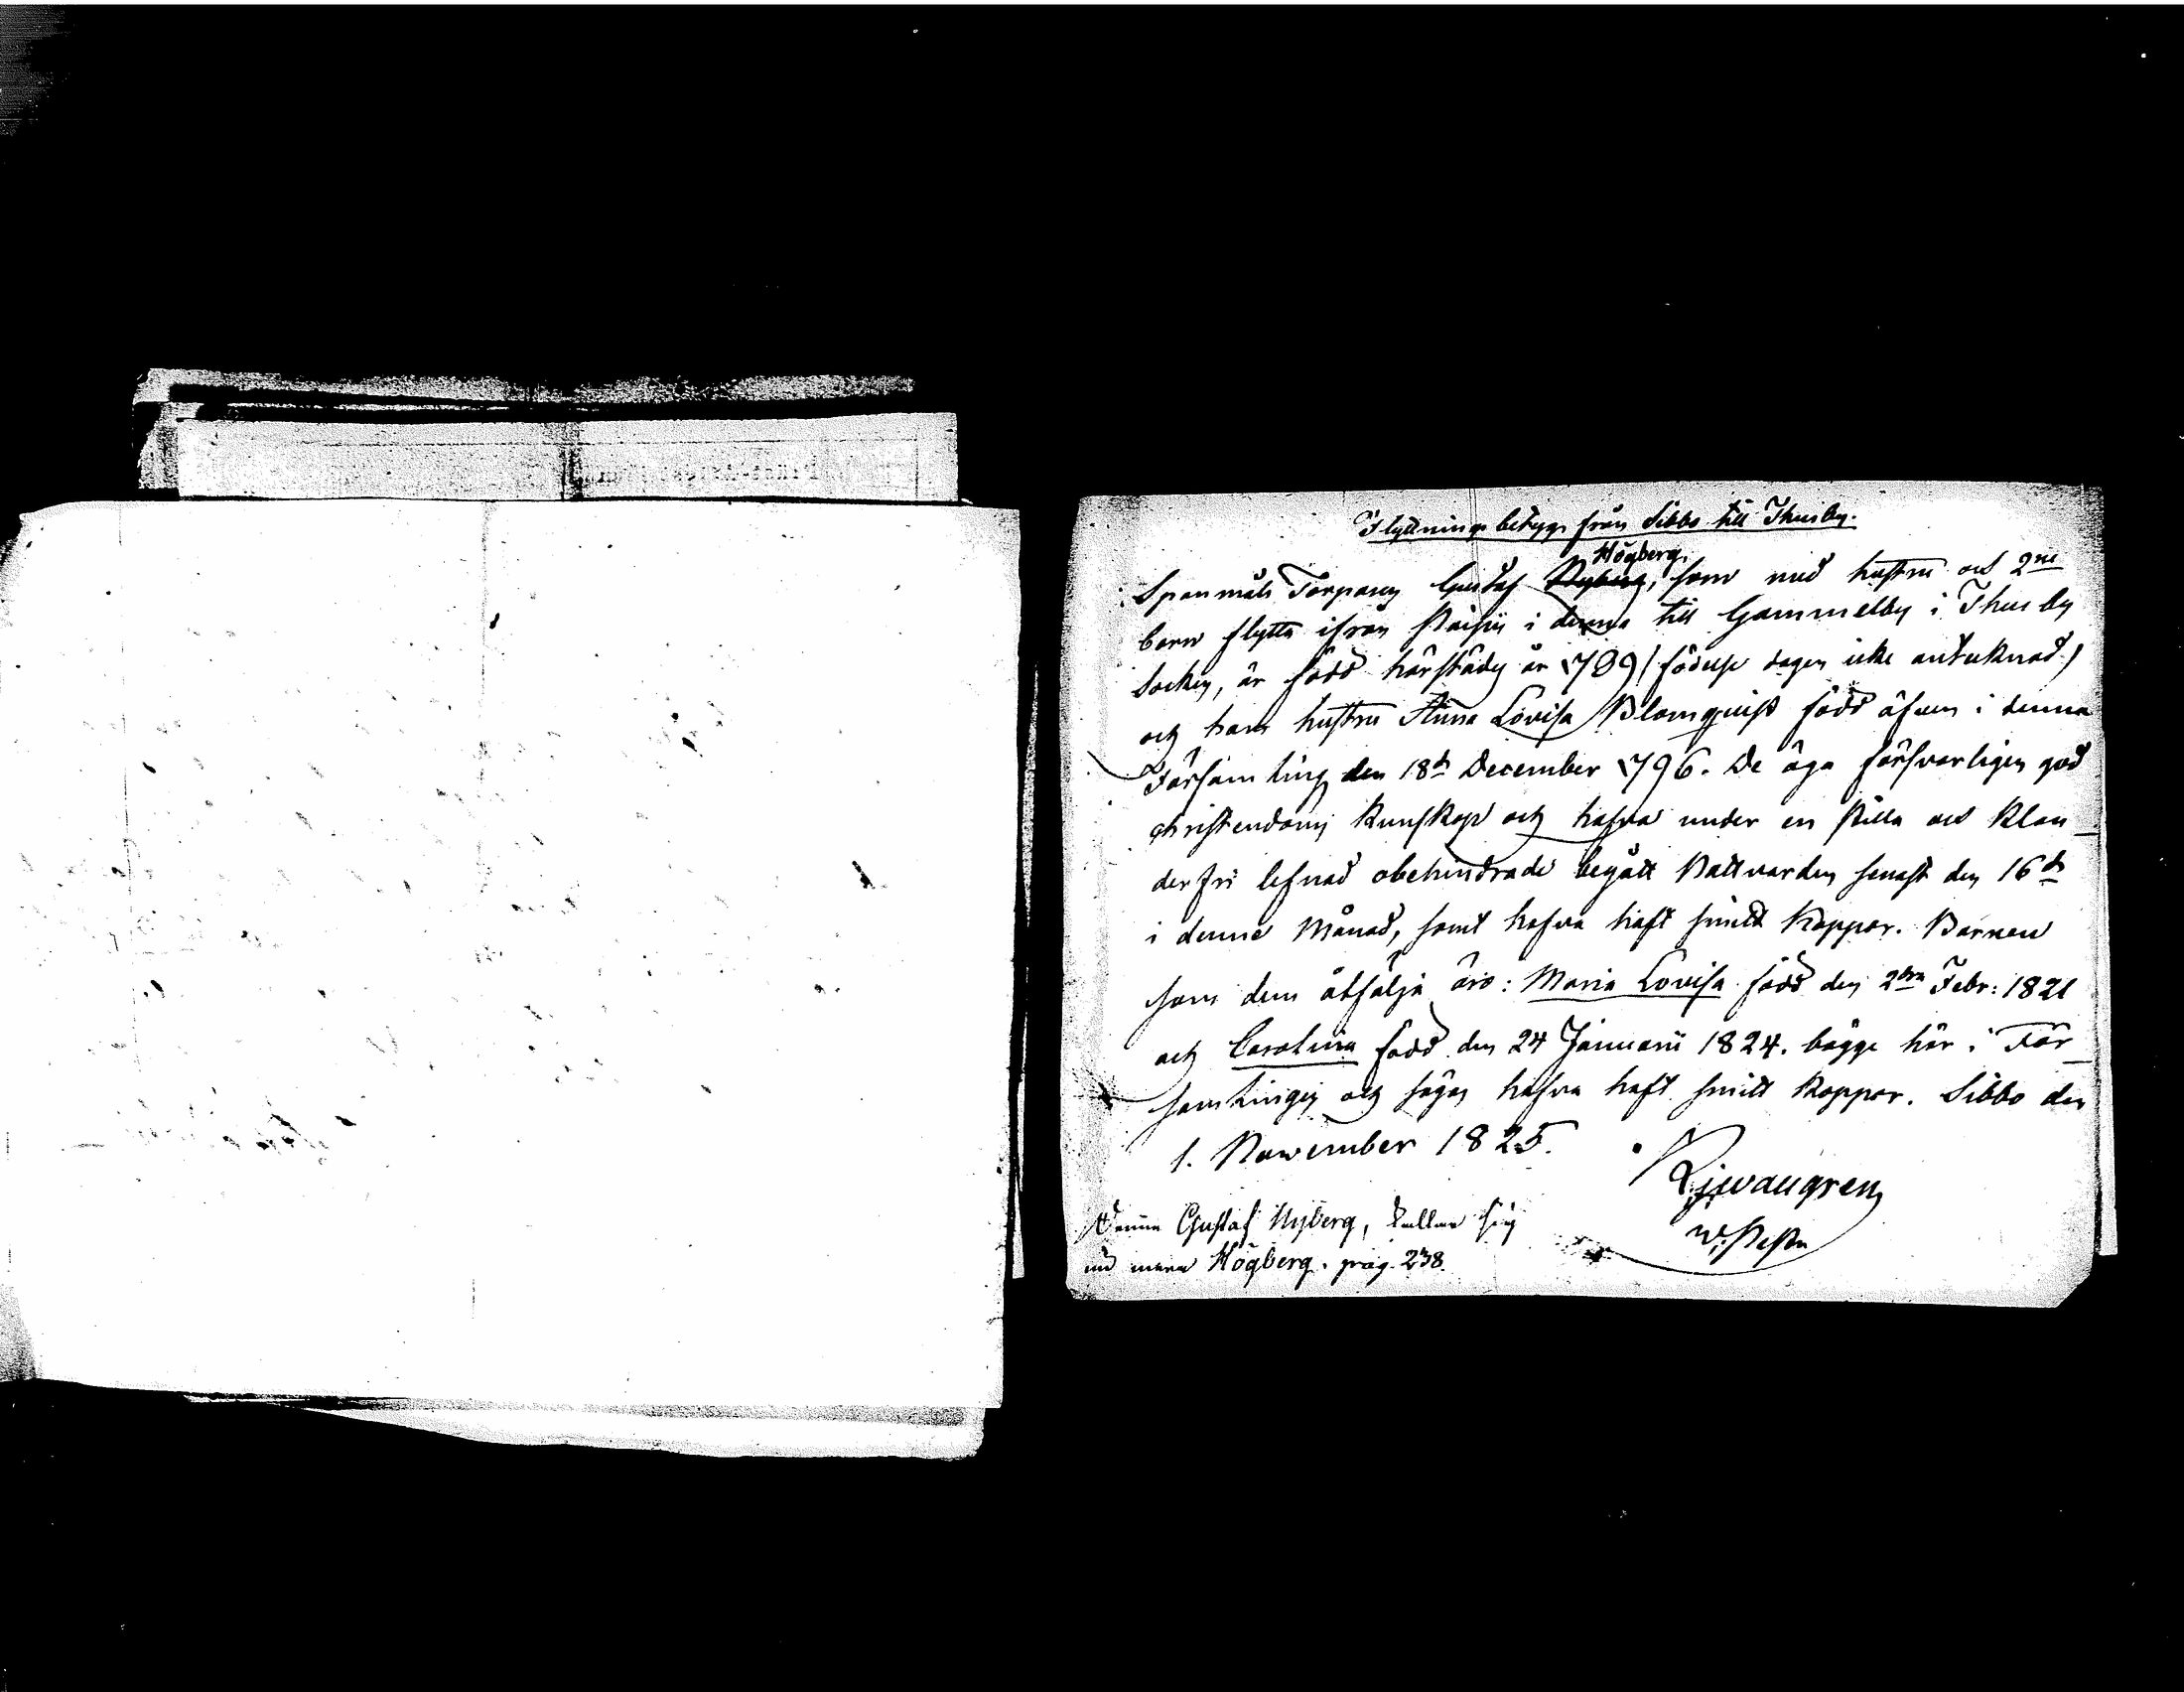 Flyttnings betyg från Sibbo till Thusby.
Högberg,
Spanmåls Torparen Gustaf Nyberg, som med hustru och 2ne
barn flytta ifrån i denna till Gammelby i Thusby
Socken, är född härstädes år 1789 (födelse dagen icke antecknad)
och hans hustru Anna Lovisa Blomqvist född äfven i denna
Församling den 18de December 1796. De äga försvarligen god
christendoms kunskap och hafva under en stilla och klan-
derfri lefnad obehindrade begått Nattvarden senast den 16de
i denne Månad, samt hafva haft smitt koppor. Barnen
som dem åtfölja äro: Maria Lovisa född den 2dra Febr: 1821
och Carolina född den 24 Januarii 1824. bägge här i För-
samlingen och sägas hafva haft smitt koppor. Sibbo den
1. November 1825.
Denne Gustaf Nyberg, kallar sig
nu mera Högberg. pag. 238.